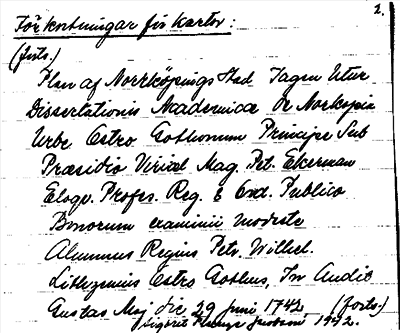 2.
Förkortningar för kartor:
(forts.)
Plan af Norrköpings Stad Tagen Utur
Dissertationis Academicæ De Norkopia
Urbe Ostro Gothorum Principe Sub
Præsidio Viri Mag. Pet. Ekerman
Eloqv. Profes. Reg. & Ord. Publico
Bonorum examini modeste
Alumnus Regius Petr. Wilhel.
Ostro Gothus, In Audit
Gustav Maj. die 29 Juni 1742. (forts.)
1942.